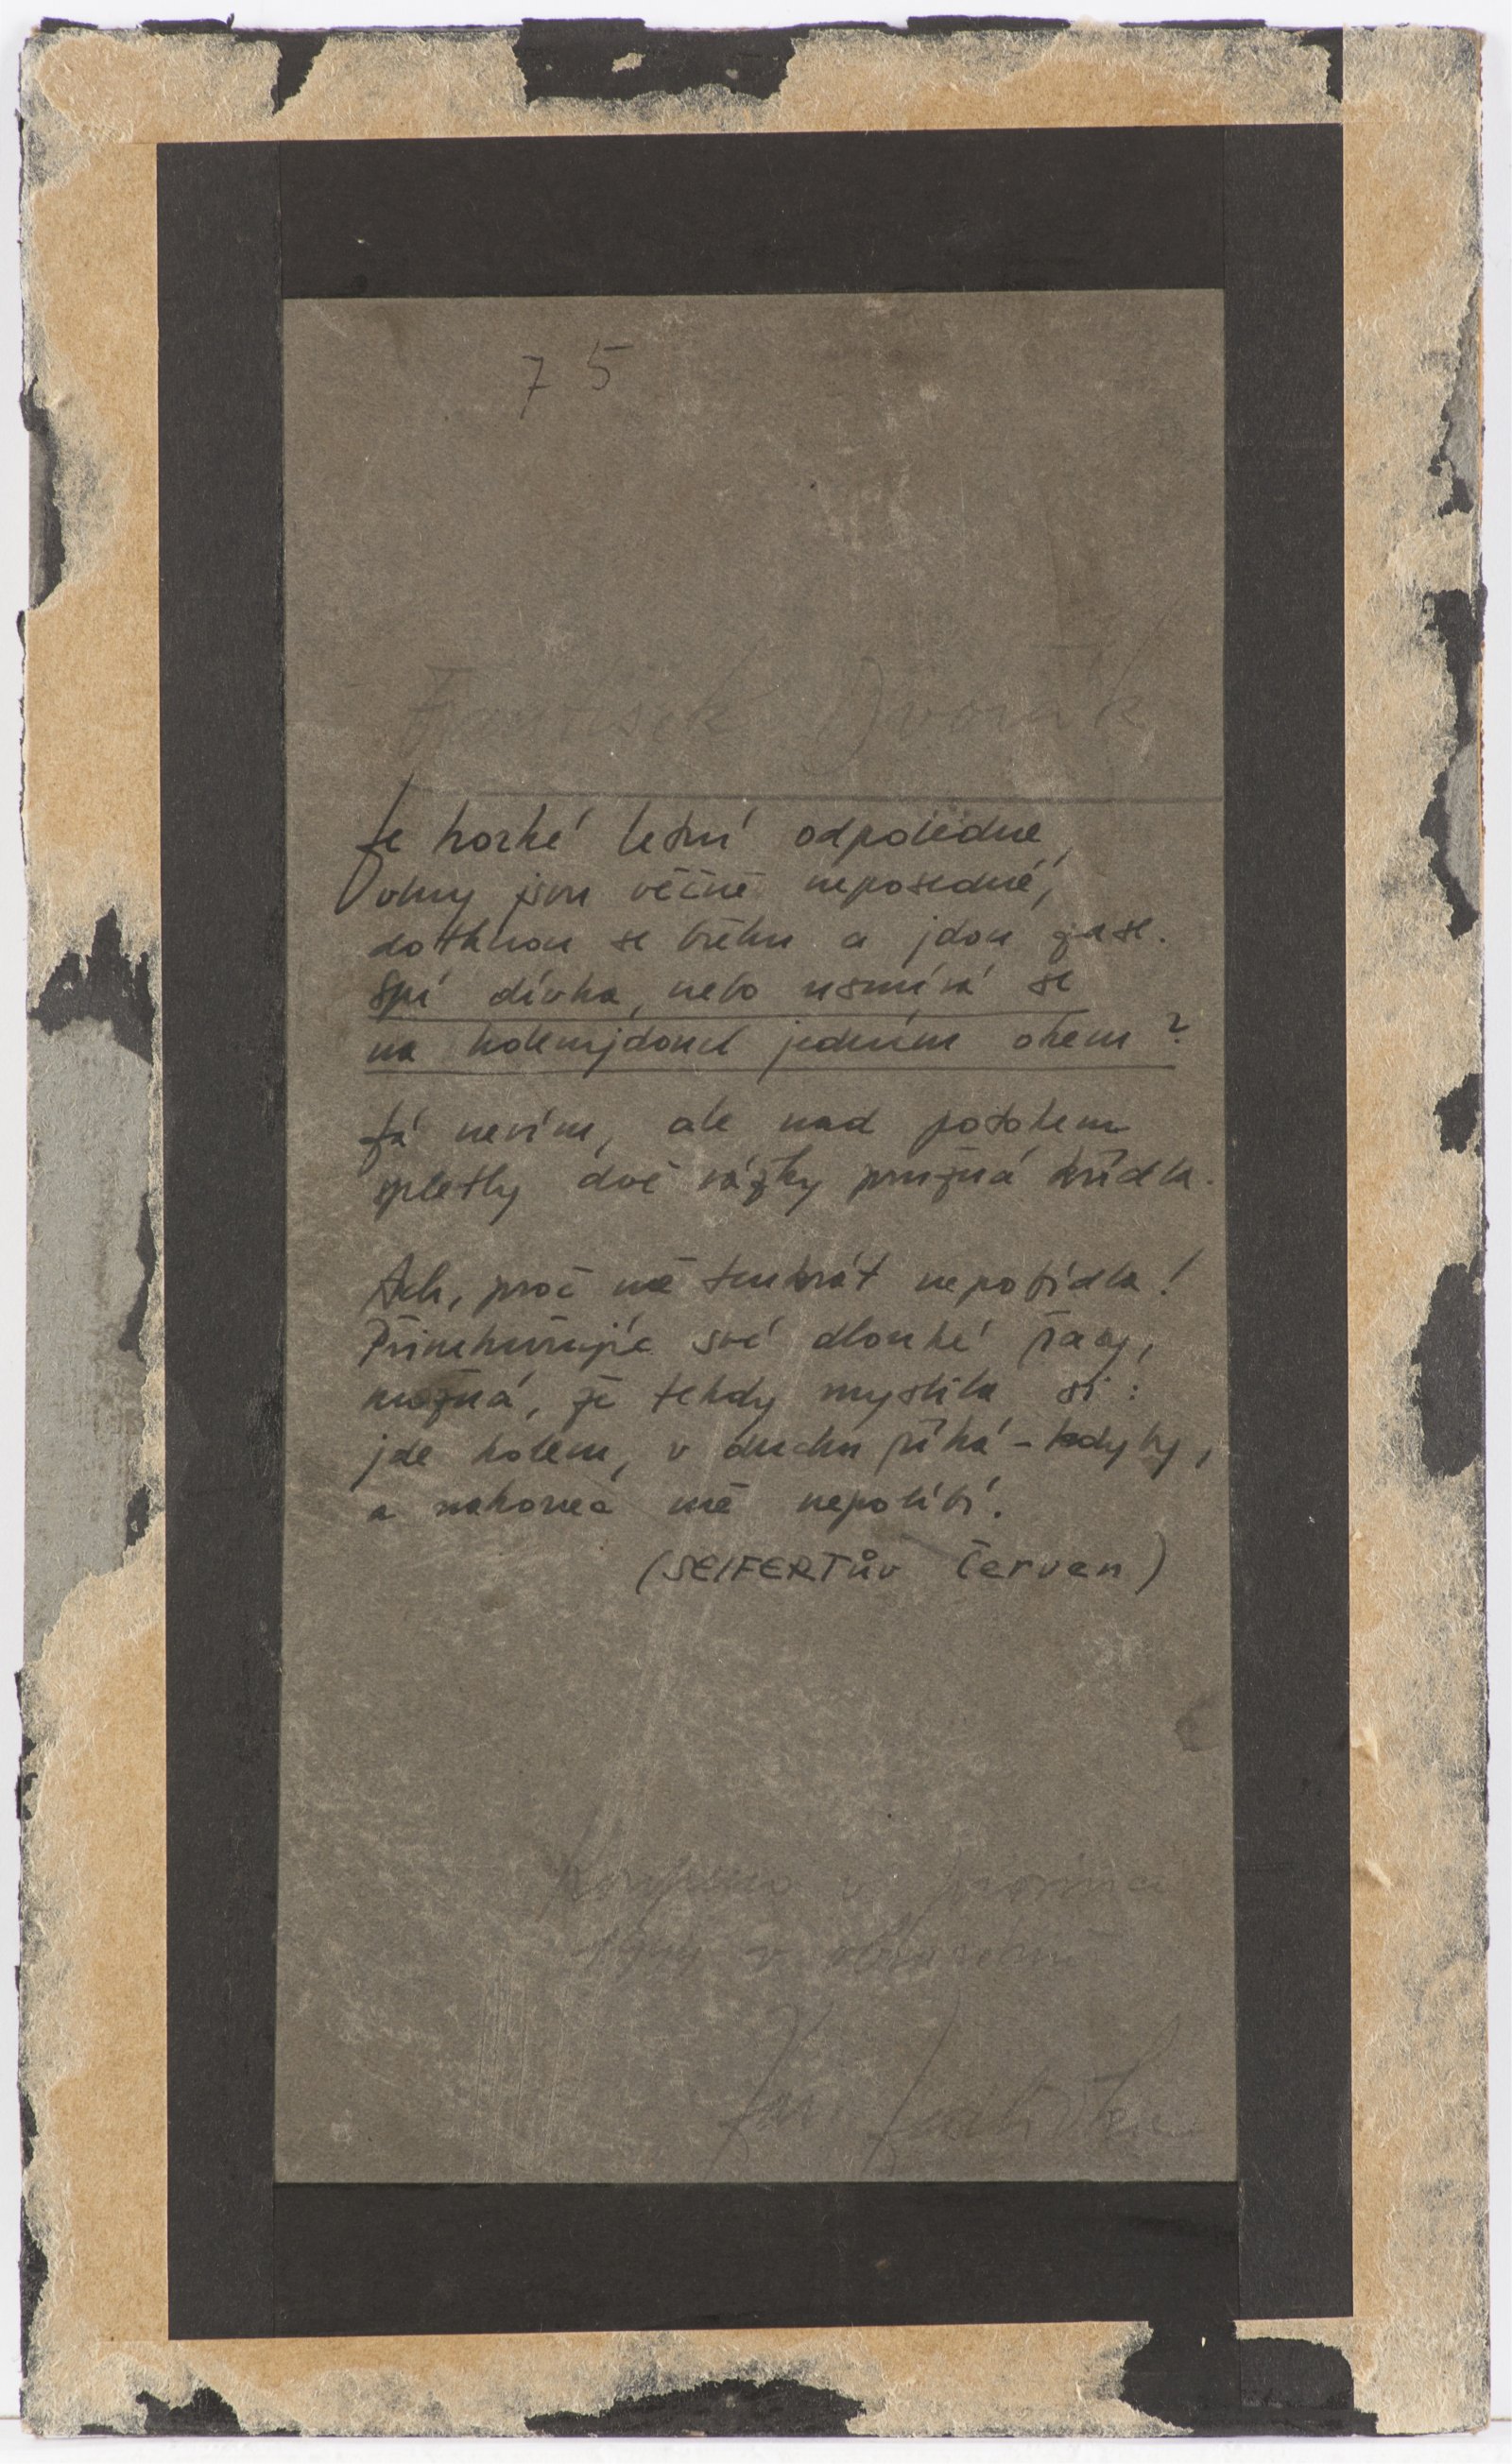 75
František Dvořák
Je horké letní odpoledne,
Vlny jsou věčně neposedné,
dotknou se břehu a jdou zase.
Spí dívka, nebo usmívá se
na kolemjdoucí jedním okem?
Já nevím, ale nad potokem
spletly dvě vážky pružná křídla.
Ach, proč mě tenkrát nepobídla!
Přimhuřujíc své dlouhé řasy,
možná, že tehdy myslila si:
jde kolem, v duchu říká - kdyby,
a nakonec mě nepolíbí.
(SEIFERTův Červen)
v
v
Jan